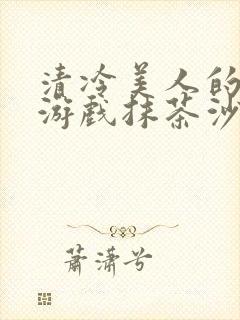 清冷美人的
游戏抹茶沙
萧潇兮